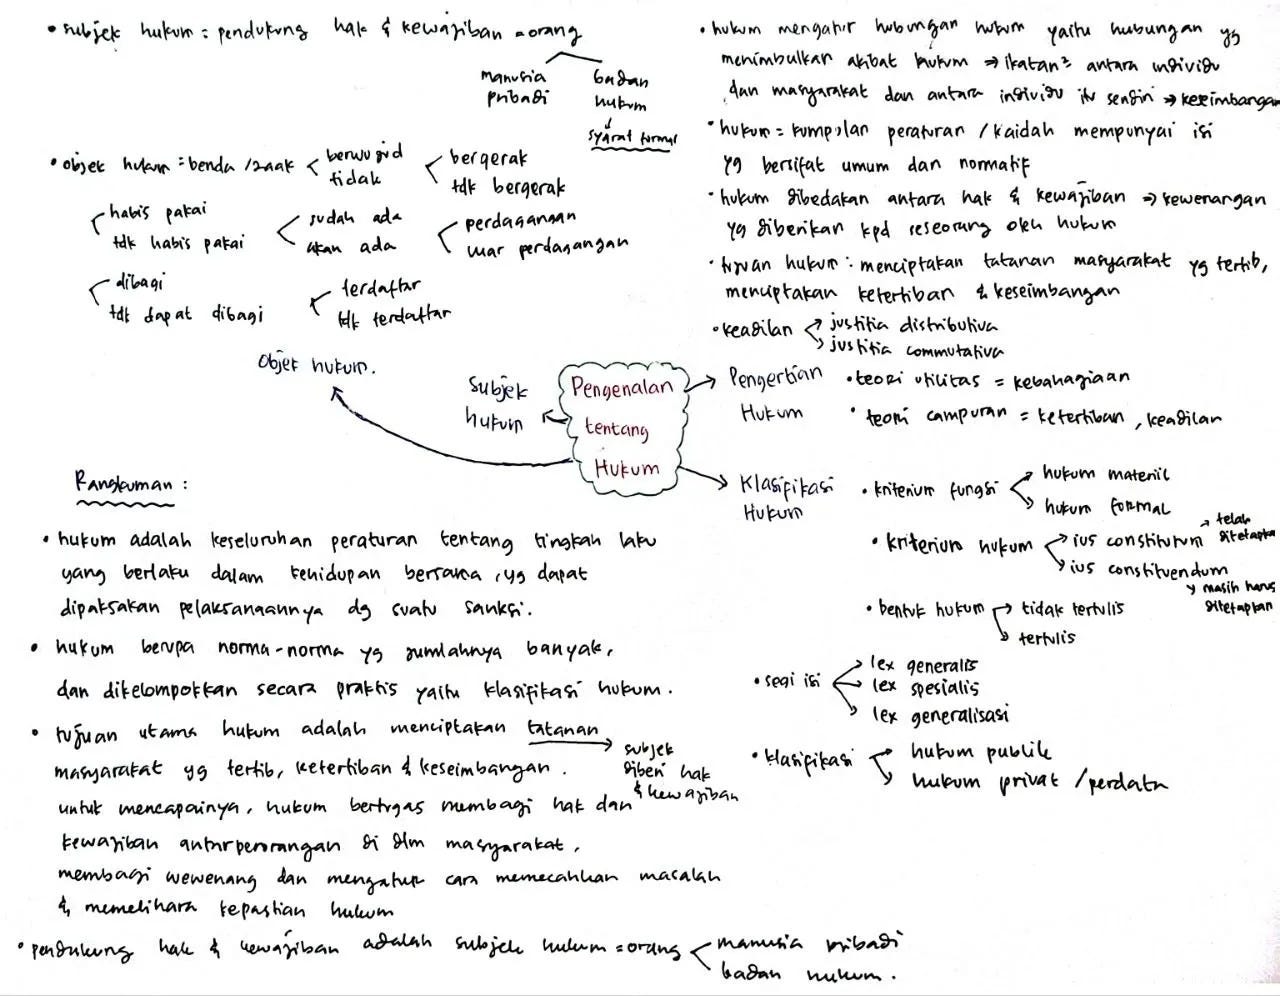 • subjek hukum = pendukung hak & kewajiban = orang
manusia
pribadi
badan
hukum
↓
syarat formal
• objek hukum = benda / zaak < berwujud
tidak
< bergerak
tdk bergerak
< habis pakai
tdk habis pakai
< sudah ada
akan ada
< perdagangan
luar perdagangan
< dibagi
tdk dapat dibagi
< terdaftar
tdk terdaftar
Objek hukum.
Subjek
hukum
Pengenalan
tentang
Hukum
• hukum mengatur hubungan hukum yaitu hubungan yg
menimbulkan akibat hukum → ikatan² antara individu
dan masyarakat dan antara individu itu sendiri → keseimbangan
• hukum = kumpulan peraturan / kaidah mempunyai isi
yg bersifat umum dan normatif
• hukum dibedakan antara hak & kewajiban → kewenangan
yg diberikan kpd seseorang oleh hukum
• tujuan hukum : menciptakan tatanan masyarakat yg tertib,
menciptakan ketertiban & keseimbangan
• keadilan → justitia distributiva
→ justitia commutativa
Pengertian
Hukum
• teori utilitas = kebahagiaan
• teori campuran = ketertiban, keadilan
Klasifikasi
Hukum
• kriterium fungsi → hukum materiil
→ hukum formal
• kriterium hukum → ius constitutum → telah
ditetapkan
→ ius constituendum
→ masih harus
ditetapkan
• bentuk hukum → tidak tertulis
→ tertulis
• segi isi → lex generalis
→ lex spesialis
→ lex generalisasi
• klasifikasi → hukum publik
→ hukum privat / perdata
Rangkuman :
• hukum adalah keseluruhan peraturan tentang tingkah laku
yang berlaku dalam kehidupan bersama, yg dapat
dipaksakan pelaksanaannya dg suatu sanksi.
• hukum berupa norma-norma yg jumlahnya banyak,
dan dikelompokkan secara praktis yaitu klasifikasi hukum.
• tujuan utama hukum adalah menciptakan tatanan
→ subjek
diberi hak
& kewajiban
masyarakat yg tertib, ketertiban & keseimbangan.
untuk mencapainya, hukum bertugas membagi hak dan
kewajiban antarperorangan di dlm masyarakat,
membagi wewenang dan mengatur cara memecahkan masalah
& memelihara kepastian hukum
• pendukung hak & kewajiban adalah subjek hukum = orang < manusia pribadi
badan hukum.